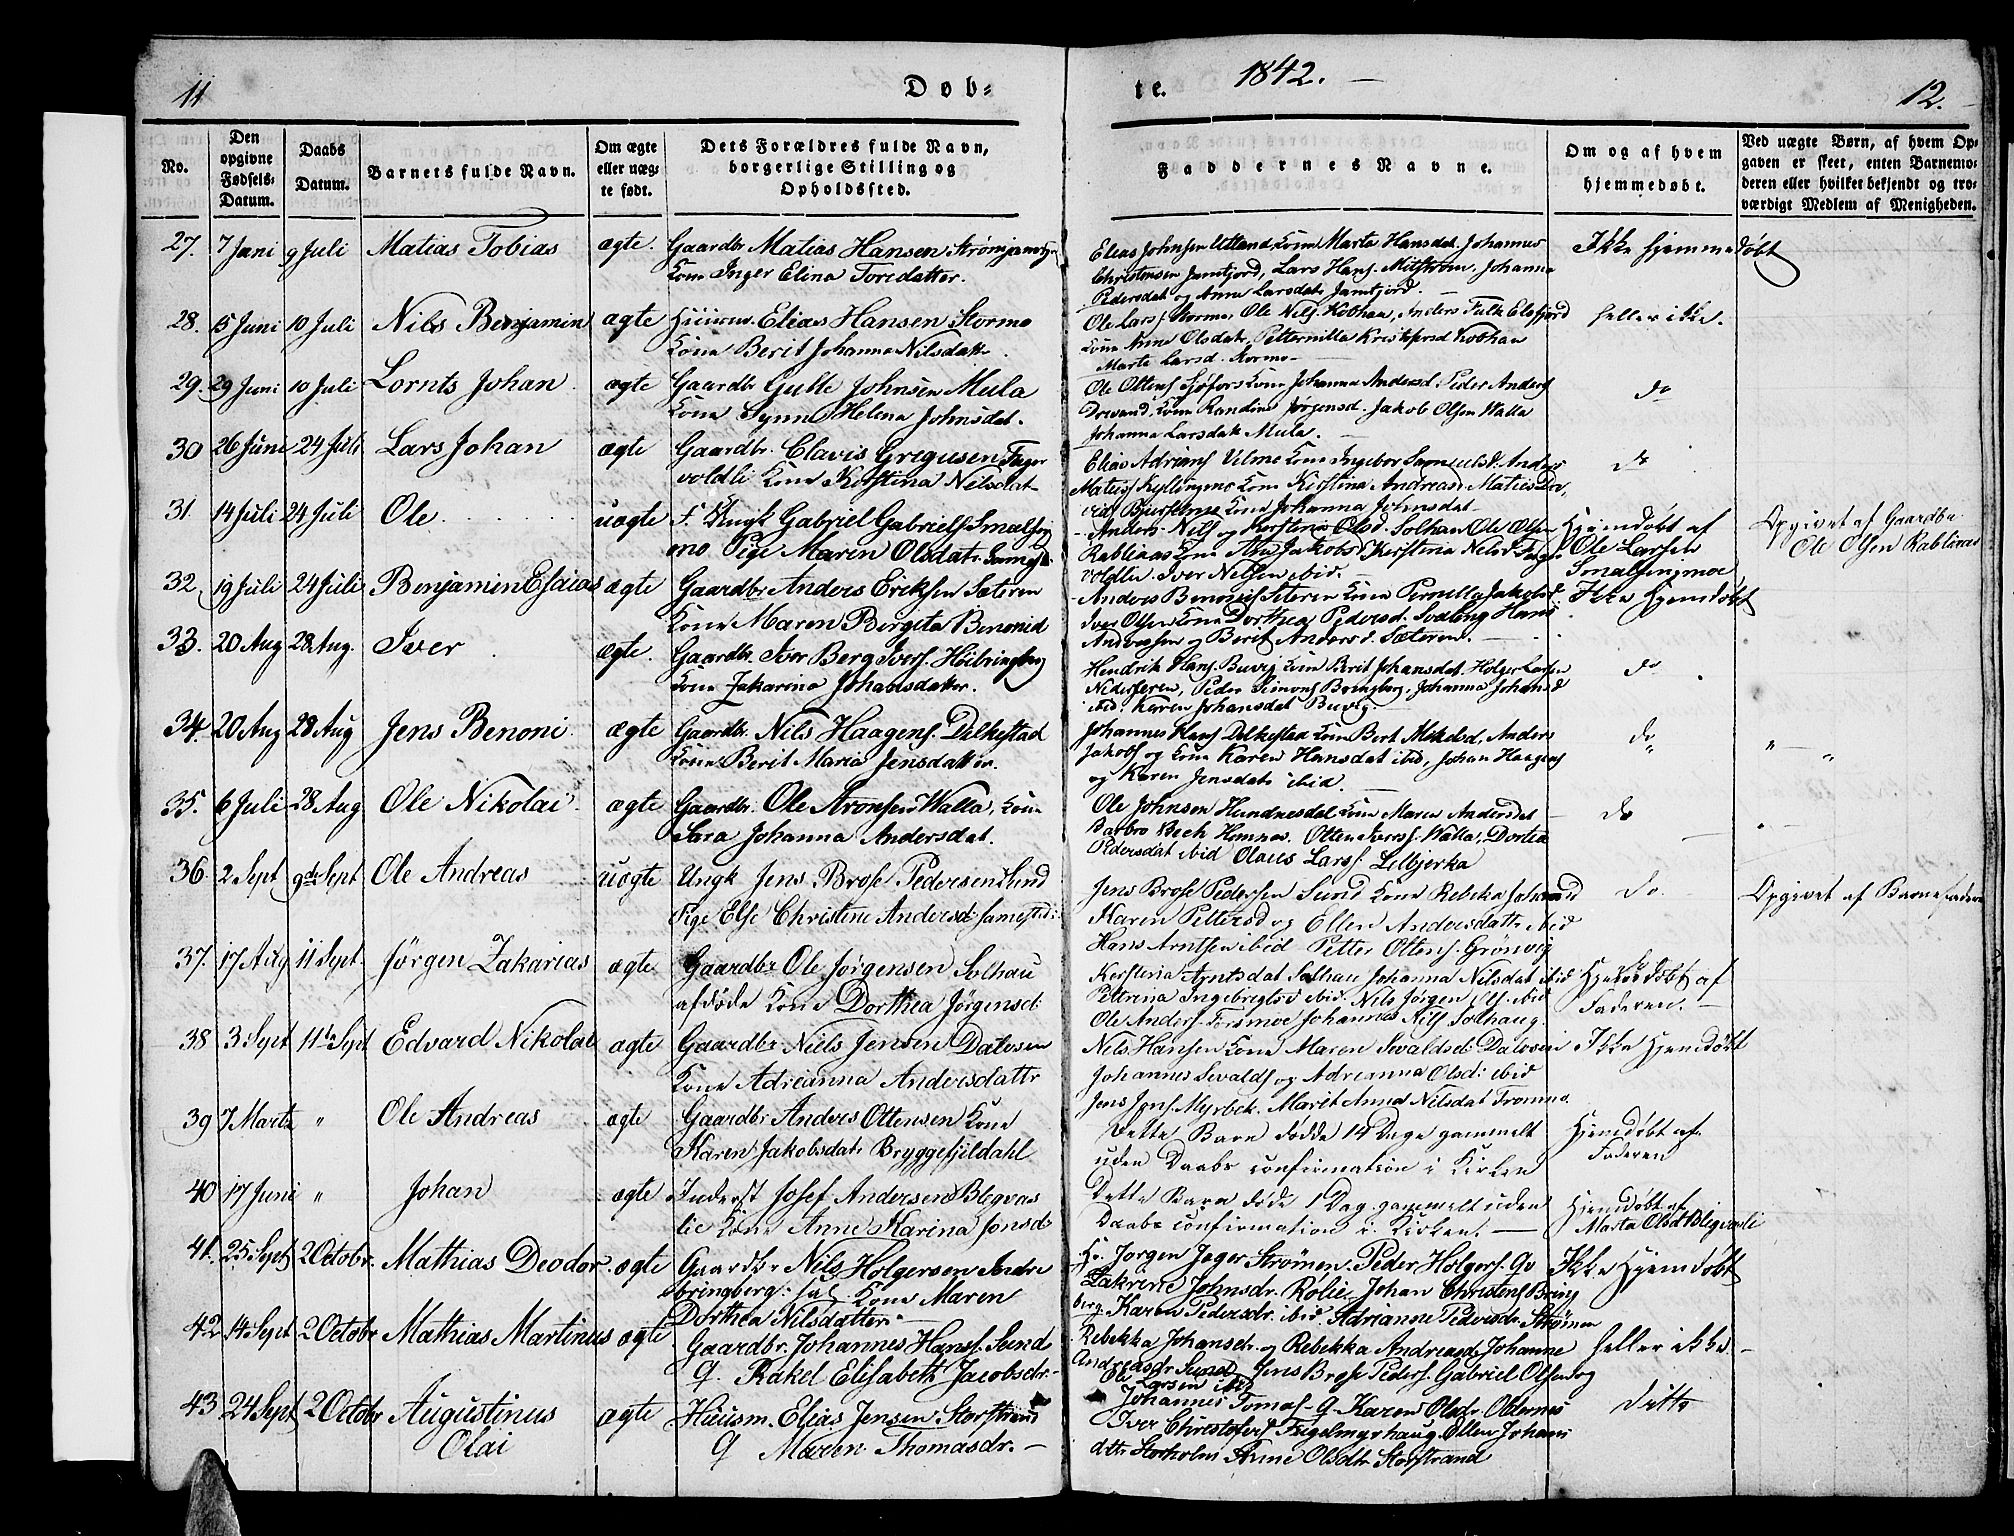 11
Døb-
te.
1842.
12.
No.
Den opgivne Fødsels-Datum.
Daabs Datum.
Barnets fulde Navn.
Om ægte eller uæg-te født.
Dets Forældres fulde Navn, borgerlige Stilling og Opholdsfted.
Faddernes Navne.
Om og af hvem hjemmedøbt.
Ved uægte Børn, af hvem Op-gaven er skeet, enten Barnemo-deren eller hvilket bekjendt og tro-værdigt Medlem af Menigheden.
27. 7 Juni 9 Juli Matias Tobias ægte. Gaardbr Matias Hansen
Kone Inger Elina Toresdatter.
Elias Johnsen Utland Kone Marta Hansdat. Johannes
Christensen Jamtjord, Lars Hans. Mitstrøm, Johanna
Pedersdat og Anne Larsdat. Jamtjord.
Ikke hjemmedøbt
28. 15 Juni 10 Juli Nils Benjamin ægte Huusm. Elias Hansen Stormo
Kone Berit Johanna Nilsdatr.
Ole Lars. Stormo, Ole Nils. Kobhau, Anders Falk Elsfjord
Kone Anne Olsdatr, Petternilla Kobhau
Marte Larsd. Stormo
heller ikke.
29. 29 Juni 10 Juli Lornts Johan ægte Gaardbr Gulle Johnsen Mula
Kone Synn Helena Johnsdat.
Ole Ottens Kone Johanna Andersd. Peder Anders
Drevand, Kone Randine Jørgensd. Jakob Olsen Walla
Johanna Larsdatr Mula.
do
30 26 Juni 24 Juli Lars Johan ægte Gaardbr. Clavis Gregusen Finger
voldli Kone Kerstina Nilsdat
Elias Adrians Kone Ingebor Samuelsd. Anders
Matis Kyllingmo Kone Kirstina Andreasd. Matis
Kone Johanna Johnsdat
do
31. 14 Juli 24 Juli Ole uægte F. Ungk Gabriel Gabriels Smalseng
mo Pige Maren Olsdatr.
Anders Nils og Kerstina Olsd. Solhau Ole Olsen
Rablinas Kone Ane Jakobsd Kerstina Nelsd
voldlie. Iver Nelsen ibid.
Hjemdøbt af
Ole Larsen
Smalsengmoe
Opgivet af Gaardbr
Ole Olsen Rablinas
32. 19 Juli 24 Juli Benjamin Esaias ægte Gaardbr Anders Eriksen Sæteren
Kone Maren Bergeta Benonid
Anders Benonis Seteren Kone Pernella Jakobsd
Iver Olsen Kone Dorthea Pedersd. Svaleng Hans
Andreasen og Berit Andersd. Sæteren.
Ikke hjemdøbt
33. 20 Aug 28 Aug. Iver ægte. Gaardbr. Iver Berg Ivers. Høibringberg
Kone Zakarina Johansdatter.
Hendrik Hans. Buvig Kone Berit Johansdat. Holger Larsen
Nederleren, Peder Simons Bringberg, Johanna Johansd
ibid. Karen Johansdat Buvig
do
34. 20 Aug 28 Aug Jens Benoni ægte Gaardbr. Nils Haagens. Dilkestad
Kone Berit Maria Jensdatter.
Johannes Hans Delkestad Kone Berit Mikelsd. Anders
Jakobs og Kone Karen Hansdat ibid, Johan Haagens
og Karen Jensdatr ibid.
do
35. 6 Juli 28 Aug Ole Nikolai ægte Gaardbr. Ole Aronsen Walla, Kone
Sara Johanna Andersdat.
Ole Johnsen Hundnesdal Kone Maren Andersdat
Barbro Bech Hemnæs. Otten Ivers. Walla, Dortea
Pedersdat ibid Olaus Lars. Lilbjerka
do
36. 2 Sept 9de Sept Ole Andreas uægte Ungk Jens Brose Pedersen Sund
Pige Else Christine Andersd: samested:
Jens Brose Pedersen Sund Kone Rebeka Johansd
Karen Pettersd og Ellen Andersdatr ibid
Hans Arntsen ibid Petter Ottens. Grønvig
do.
Opgivet af Barnefaderen
37. 17 Aug 11 Sept. Jørgen Zakarias ægte Gaardbr Ole Jørgensen Solhau
afdøde Kone Dorthea Jørgensd:
Kerstina Arntsdat Solhau Johanna Nilsdat ibid
Petrina Ingebrigtsd ibid. Nils Jørgen Ols. ibid
Ole Anders. Forsmoe Johannes Nils Solhaug.
Hjemdøbt af
Faderen.
38 3 Sept 11te Sept Edvard Nikolai ægte Gaardbr Niels Jensen Dalosen
Kone Adreanna Andersdattr
Nels. Hansen Kone Maren Sevaldsd: Dalosen
Johannes Sevalds og Adrianna Olsd: ibid
Jens Jens. Myrbek. Marit Anna Nilsdat Fromno
Ikke Hjemdøbt
39 7 Marts „ Ole Andreas ægte Gaardbr Anders Ottensen Kone
Karen Jakobsdatr Bryggefjeldahl
Dette Barn døde 14 Dage gammelt
uden Daabs confirmation i Kirken
Hjemdøbt af
Faderen
40 17 Juni „ Johan ægte Inderst Josef Andersen Blegvas
lie Kone Anne Karina Jonsd:
Dette Barn døde 1 Dag gammelt uden
Daabs confirmation i Kirken.
Hjemdøbt af
Marta Olsd Bligvasli
41. 25 Sept 2 Octobr. Mathias Deodor. ægte Gaardbr Nils Holgersen Indre
bringberg: Kone Maren
Dorthea Nilsdatter
Hr. Jorgen Jeger Strømen. Peder Holgers. Qv
Zakrine Johnsdr. Rølie, Johan Christens Bring
berg. Karen Pedersdr. ibid. Adrianne Pedersdr. Strømen
Ikke Hjemdøbt
42. 14 Sept 2 Octobr Mathias Martinus ægte Gaardbr. Johannes Hans. Sund
Q. Rakel Elisabeth Jacobsdr.
Rebekka Johansdr. og Rebekka Andreasd. Johanne
Andreasdr. Sund, Jens Brose Peders. Gabriel Olsen og
Ole Larsen ibid
heller ikke.
43 24 Sept 2 Octobr Augustinus
Olai
ægte Huusm. Elias Jensen Storstrand
Q Maren Thomasdr.
Johannes Tomas. Q. Karen Olsdr. Oldernes
Iver Christofers Fugelmyrhaug Ellen Johans
dtr. Storholm Anne Olsdtr Storstrand
ditto